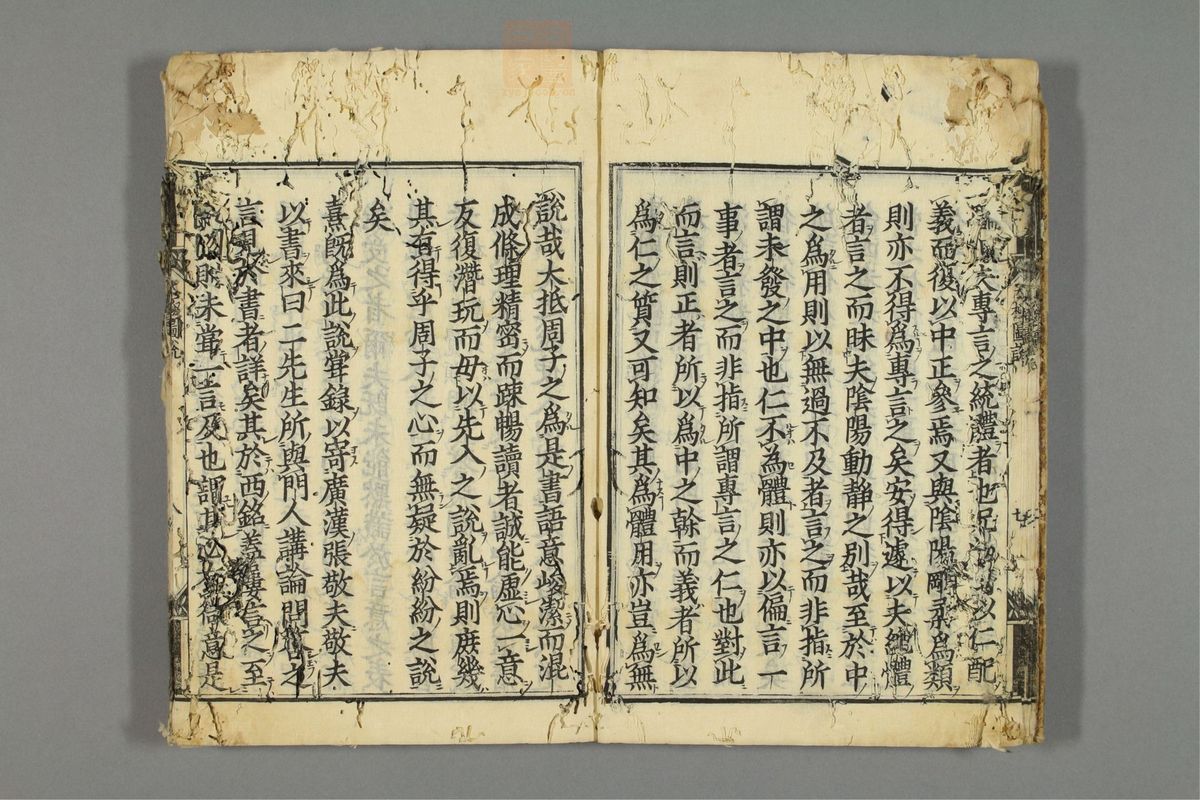 夫專言之統體者也況以仁配
義而復以中正參焉又與陰陽剛柔爲類
則亦不得爲專言之矣安得遽以夫統體
者言之而昧夫陰陽動靜之別哉至於中
之爲用則以無過不及者言之而非指所
謂未發之中也仁不為體則亦以偏言一
事者言之而非指所謂專言之仁也對此
而言則正者所以爲中之榦而義者所以
爲仁之質又可知矣其爲體用亦豈爲無
說哉大抵周子之爲是書語意峻潔而混
成條理精密而疎暢讀者誠能虛心一意
反復潛玩而毋以先入之說亂焉則庶幾
其有得乎周子之心而無疑於紛紛之說
矣
熹既爲此說嘗錄以寄廣漢張敬夫敬夫
以書來曰二先生所與門人講論問答之
言見於書者詳矣其於西銘蓋屢言之至
此圖則未嘗一言及也謂其必有微意是